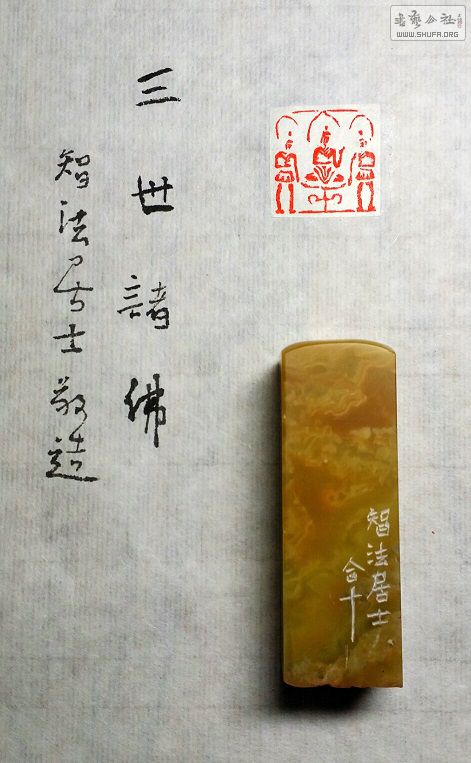 三世諸佛
智法居士敬造
智法居士
合十
書藝公社
WWW.SHUFA.ORG